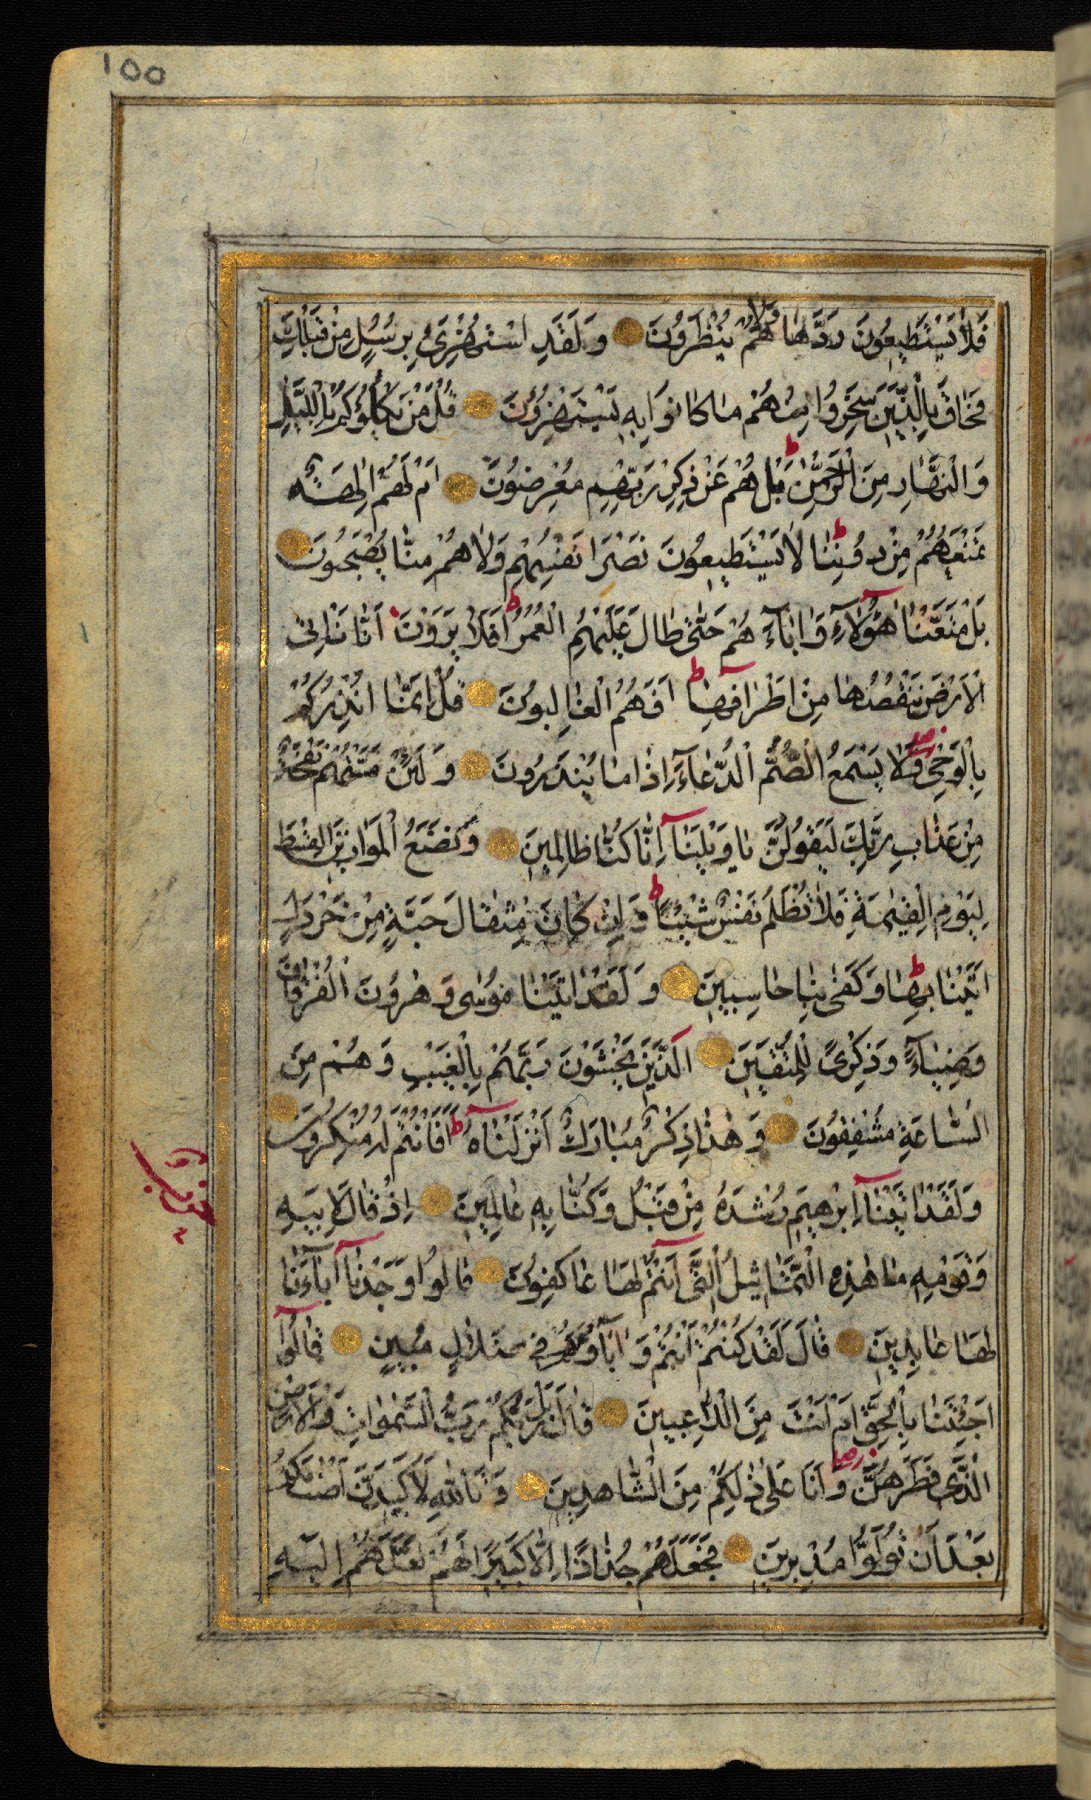 ١٥٥
فَلَا يَسْتَطِيعُونَ رَدَّهَا وَلَا هُمْ يُنْظَرُونَ وَلَقَدِ اسْتُهْزِئَ بِرُسُلٍ مِنْ قَبْلِكَ
فَحَاقَ بِالَّذِينَ سَخِرُوا مِنْهُمْ مَا كَانُوا بِهِ يَسْتَهْزِؤُنَ قُلْ مَنْ يَكْلَؤُكُمْ بِاللَّيْلِ
وَالنَّهَارِ مِنَ الرَّحْمٰنِ ط بَلْ هُمْ عَنْ ذِكْرِ رَبِّهِمْ مُعْرِضُونَ اَمْ لَهُمْ اٰلِهَةٌ
تَمْنَعُهُمْ مِنْ دُونِنَا ط لَا يَسْتَطِيعُونَ نَصْرَ اَنْفُسِهِمْ وَلَا هُمْ مِنَّا يُصْحَبُونَ
بَلْ مَتَّعْنَا هٰٓؤُلَآءِ وَاٰبَآءَ هُمْ حَتّٰى طَالَ عَلَيْهِمُ الْعُمُرُ ط اَفَلَا يَرَوْنَ اَنَّا نَاْتِى
الْاَرْضَ نَنْقُصُهَا مِنْ اَطْرَافِهَا ط اَفَهُمُ الْغَالِبُونَ قُلْ اِنَّمَٓا اُنْذِرُكُمْ
بِالْوَحْىِ وَلَا يَسْمَعُ الصُّمُّ الدُّعَآءَ اِذَا مَا يُنْذَرُونَ وَلَئِنْ مَسَّتْهُمْ نَفْحَةٌ
مِنْ عَذَابِ رَبِّكَ لَيَقُولُنَّ يَا وَيْلَنَآ اِنَّا كُنَّا ظَالِمِينَ وَنَضَعُ الْمَوَازِينَ الْقِسْطَ
لِيَوْمِ الْقِيٰمَةِ فَلَا تُظْلَمُ نَفْسٌ شَيْئًا ط وَاِنْ كَانَ مِثْقَالَ حَبَّةٍ مِنْ خَرْدَلٍ
اَتَيْنَا بِهَا ط وَكَفٰى بِنَا حَاسِبِينَ وَلَقَدْ اٰتَيْنَا مُوسٰى وَهٰرُونَ الْفُرْقَانَ
وَضِيَآءً وَذِكْرًى لِلْمُتَّقِينَ الَّذِينَ يَخْشَوْنَ رَبَّهُمْ بِالْغَيْبِ وَهُمْ مِنَ
السَّاعَةِ مُشْفِقُونَ وَهٰذَا ذِكْرٌ مُبَارَكٌ اَنْزَلْنَاهُ ط اَفَاَنْتُمْ لَهُ مُنْكِرُونَ
وَلَقَدْ اٰتَيْنَآ اِبْرٰهِيمَ رُشْدَهُ مِنْ قَبْلُ وَكُنَّا بِهِ عَالِمِينَ اِذْ قَالَ لِاَبِيهِ
وَقَوْمِهِ مَا هٰذِهِ التَّمَاثِيلُ الَّتِٓى اَنْتُمْ لَهَا عَاكِفُونَ قَالُوا وَجَدْنَآ اٰبَآءَنَا
لَهَا عَابِدِينَ قَالَ لَقَدْ كُنْتُمْ اَنْتُمْ وَاٰبَآؤُكُمْ فِى ضَلَالٍ مُبِينٍ قَالُوٓا
اَجِئْتَنَا بِالْحَقِّ اَمْ اَنْتَ مِنَ اللَّاعِبِينَ قَالَ بَلْ رَبُّكُمْ رَبُّ السَّمٰوَاتِ وَالْاَرْضِ
الَّذِى فَطَرَهُنَّ وَاَنَا عَلٰى ذٰلِكُمْ مِنَ الشَّاهِدِينَ وَتَاللّٰهِ لَاَكِيدَنَّ اَصْنَامَكُمْ
بَعْدَ اَنْ تُوَلُّوا مُدْبِرِينَ فَجَعَلَهُمْ جُذَاذًا اِلَّا كَبِيرًا لَهُمْ لَعَلَّهُمْ اِلَيْهِ